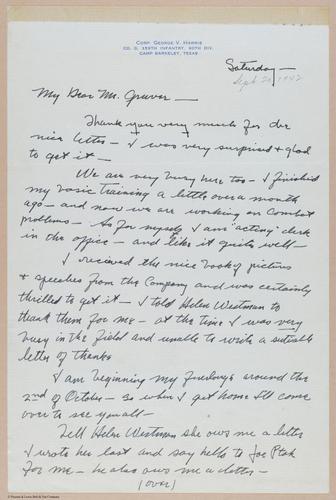 CORP. GEORGE V. HARRIS
CO. D, 359TH INFANTRY, 90TH DIV.
CAMP BARKELEY, TEXAS
Saturday —
Sept 20, 1942
My Dear Mr. Gruver —
Thank you very much for der
nice letter — I was very surprised & glad
to get it —
We are very busy here too — I finished
my basic training a little over a month
ago — and now we are working on Combat
problems — As for myself I am "acting" clerk
in the office — and like it quite well —
I recieved the nice book of pictures
& speeches from the Company and was certainly
thrilled to get it — I told Helen Westman to
thank them for me — at the time I was very
busy in the field and unable to write a suitable
letter of thanks
I am beginning my furlough around the
2nd of October — so when I get home I'll come
over to see you all —
Tell Helen Westman she ows me a letter
I wrote her last and say hello to Joe Ptak
for me — he also ows me a letter —
(over)